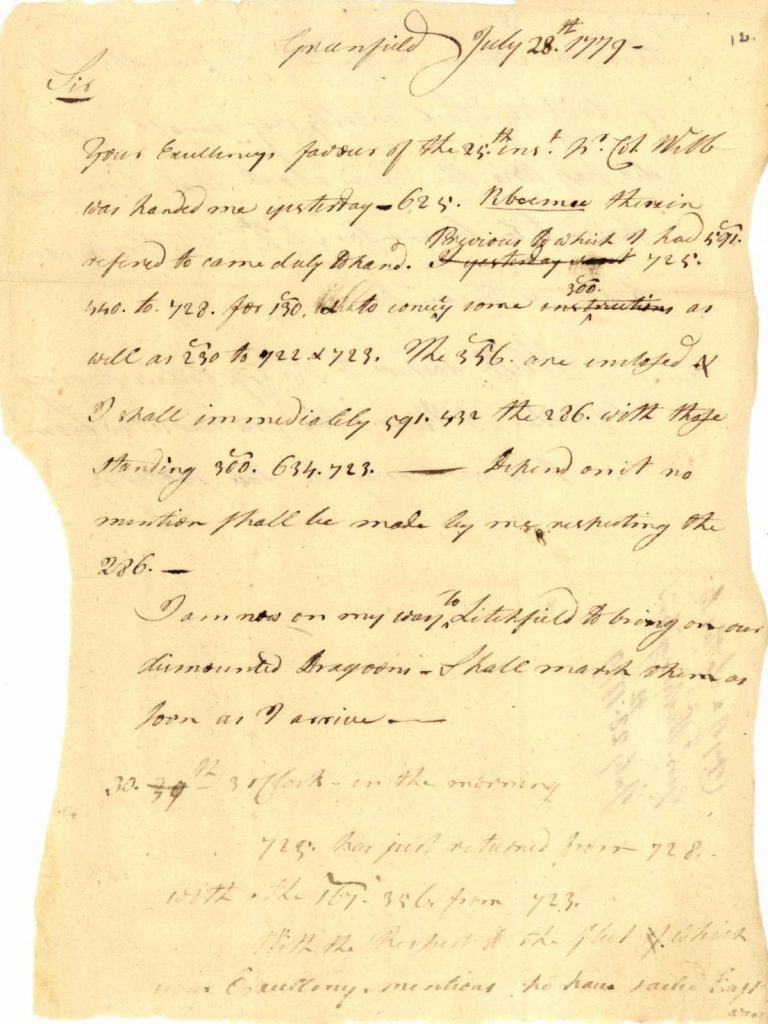 12.
Greenfield July 28.th 1779 -
Sir
Your Excellencys favour of the 25.th inst. pr. Col. Webb
was handed me yesterday - 625. therein
Previous to which I had 591.
refered to came duly to hand. I yesterday sent 725.
300.
440. to 728. for 150, to convey some instructions as
well as 230 to 722 & 723. The 356. are inclosed &
I shall immediately 591. 432 the 286. with those
standing 300. 634. 723. — Depend on it no
mention shall be made by me respecting the
286. —
to
I am now on my way Litchfield to bring on our
dismounted Dragoons - Shall march them as
soon as I arrive —
30. 29th 3 oClock - in the morning
725. has just returned from 728.
with the 167. 356. from 723.
With the Respect to the fleet which
your Excellency mentions to have sailed East